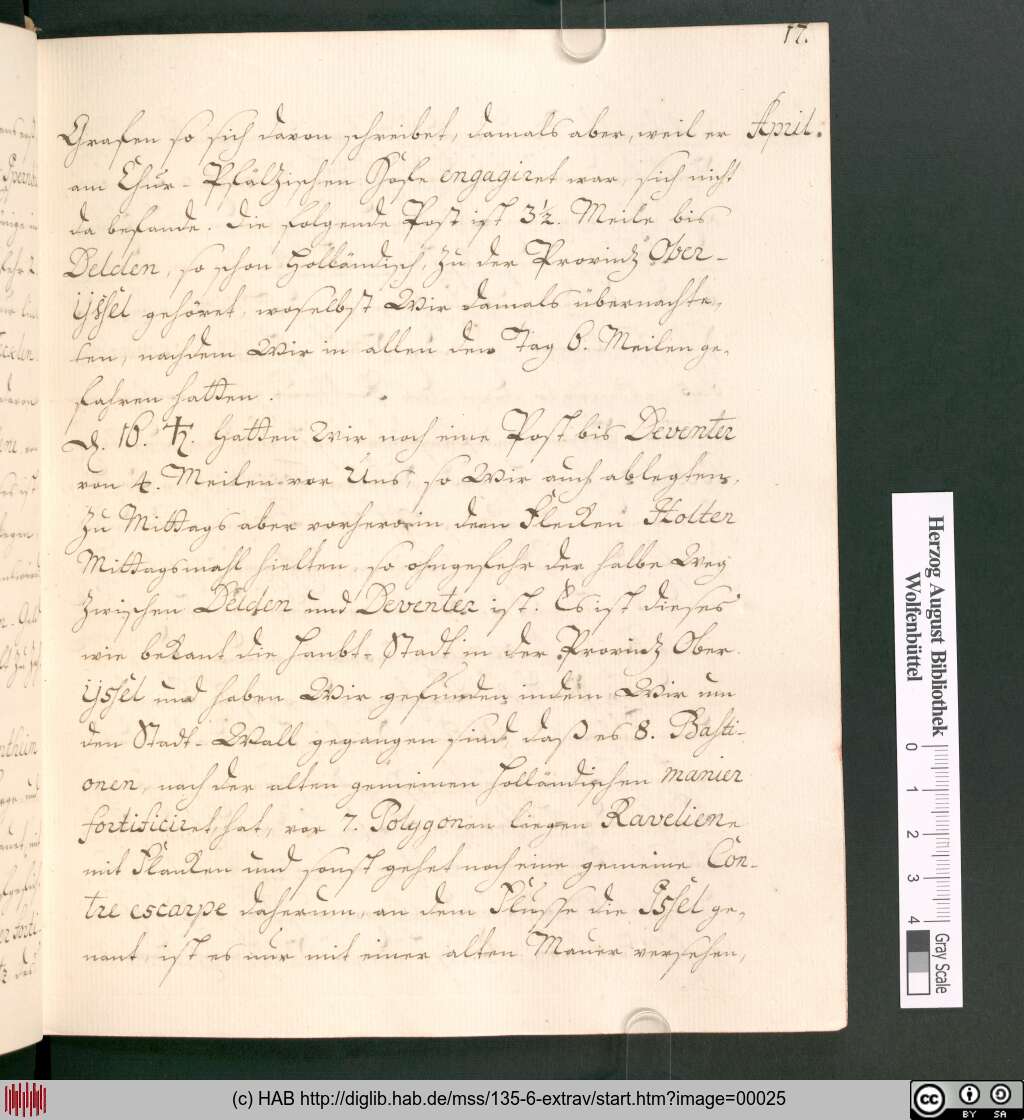 17.
April.
Grafen so sich davon schreibet, damals aber, weil er
am Chur-Pfältzischen Hofe engagiret war, sich nicht
da befande. Die folgende Post ist 3½. Meile bis
Delden, so schon Holländisch, zu der Provintz Ober-
ijssel gehöret, woselbst Wir damals übernachte-
ten, nachdem Wir in allen den Tag 6. Meilen ge-
fahren hatten.
d. 16. ♄. Hatten Wir noch eine Post bis Deventer
von 4. Meilen vor Uns, so Wir auch ablegten,
zu Mittags aber vorhero in dem Flecken Holten
Mittagsmahl hielten, so ohngefehr der halbe Weg
zwischen Delden und Deventer ist. Es ist dieses
wie bekant die Haubt-Stadt in der Provintz Ober-
ijssel und haben Wir gefunden, indem Wir um
den Stadt-Wall gegangen sind, daß es 8. Basti-
onen, nach der alten gemeinen Holländischen manier
fortificiret, hat, vor 7. Polygonen liegen Raveliene
mit Flanken und sonst gehet noch eine gemeine Con-
tre escarpe daherum, an dem Flusse die Issel ge-
nant, ist es nur mit einer alten Mauer versehen,
Herzog August Bibliothek
Wolfenbüttel
0 1 2 3 4
Gray Scale
(c) HAB http://diglib.hab.de/mss/135-6-extrav/start.htm?image=00025
cc BY SA